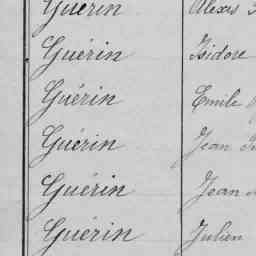 Guérin Alexis
Guérin Isidore
Guérin Emile
Guérin Jean
Guérin Jean
Guérin Julien